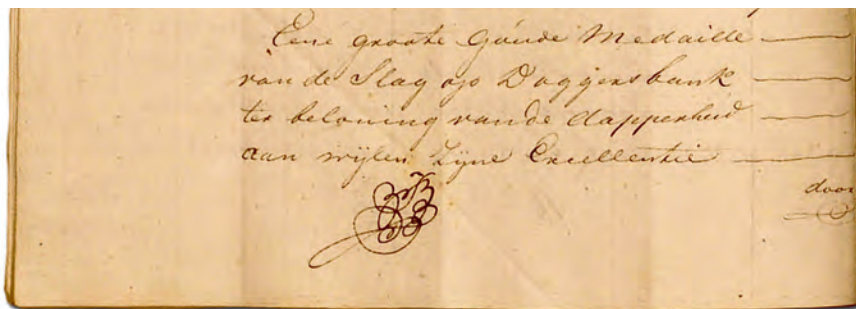 Eene groote Goude Medaille
van de Slag op Doggersbank
ter beloning van de dapperheid
aan wijlen Zijne Excellentie
door